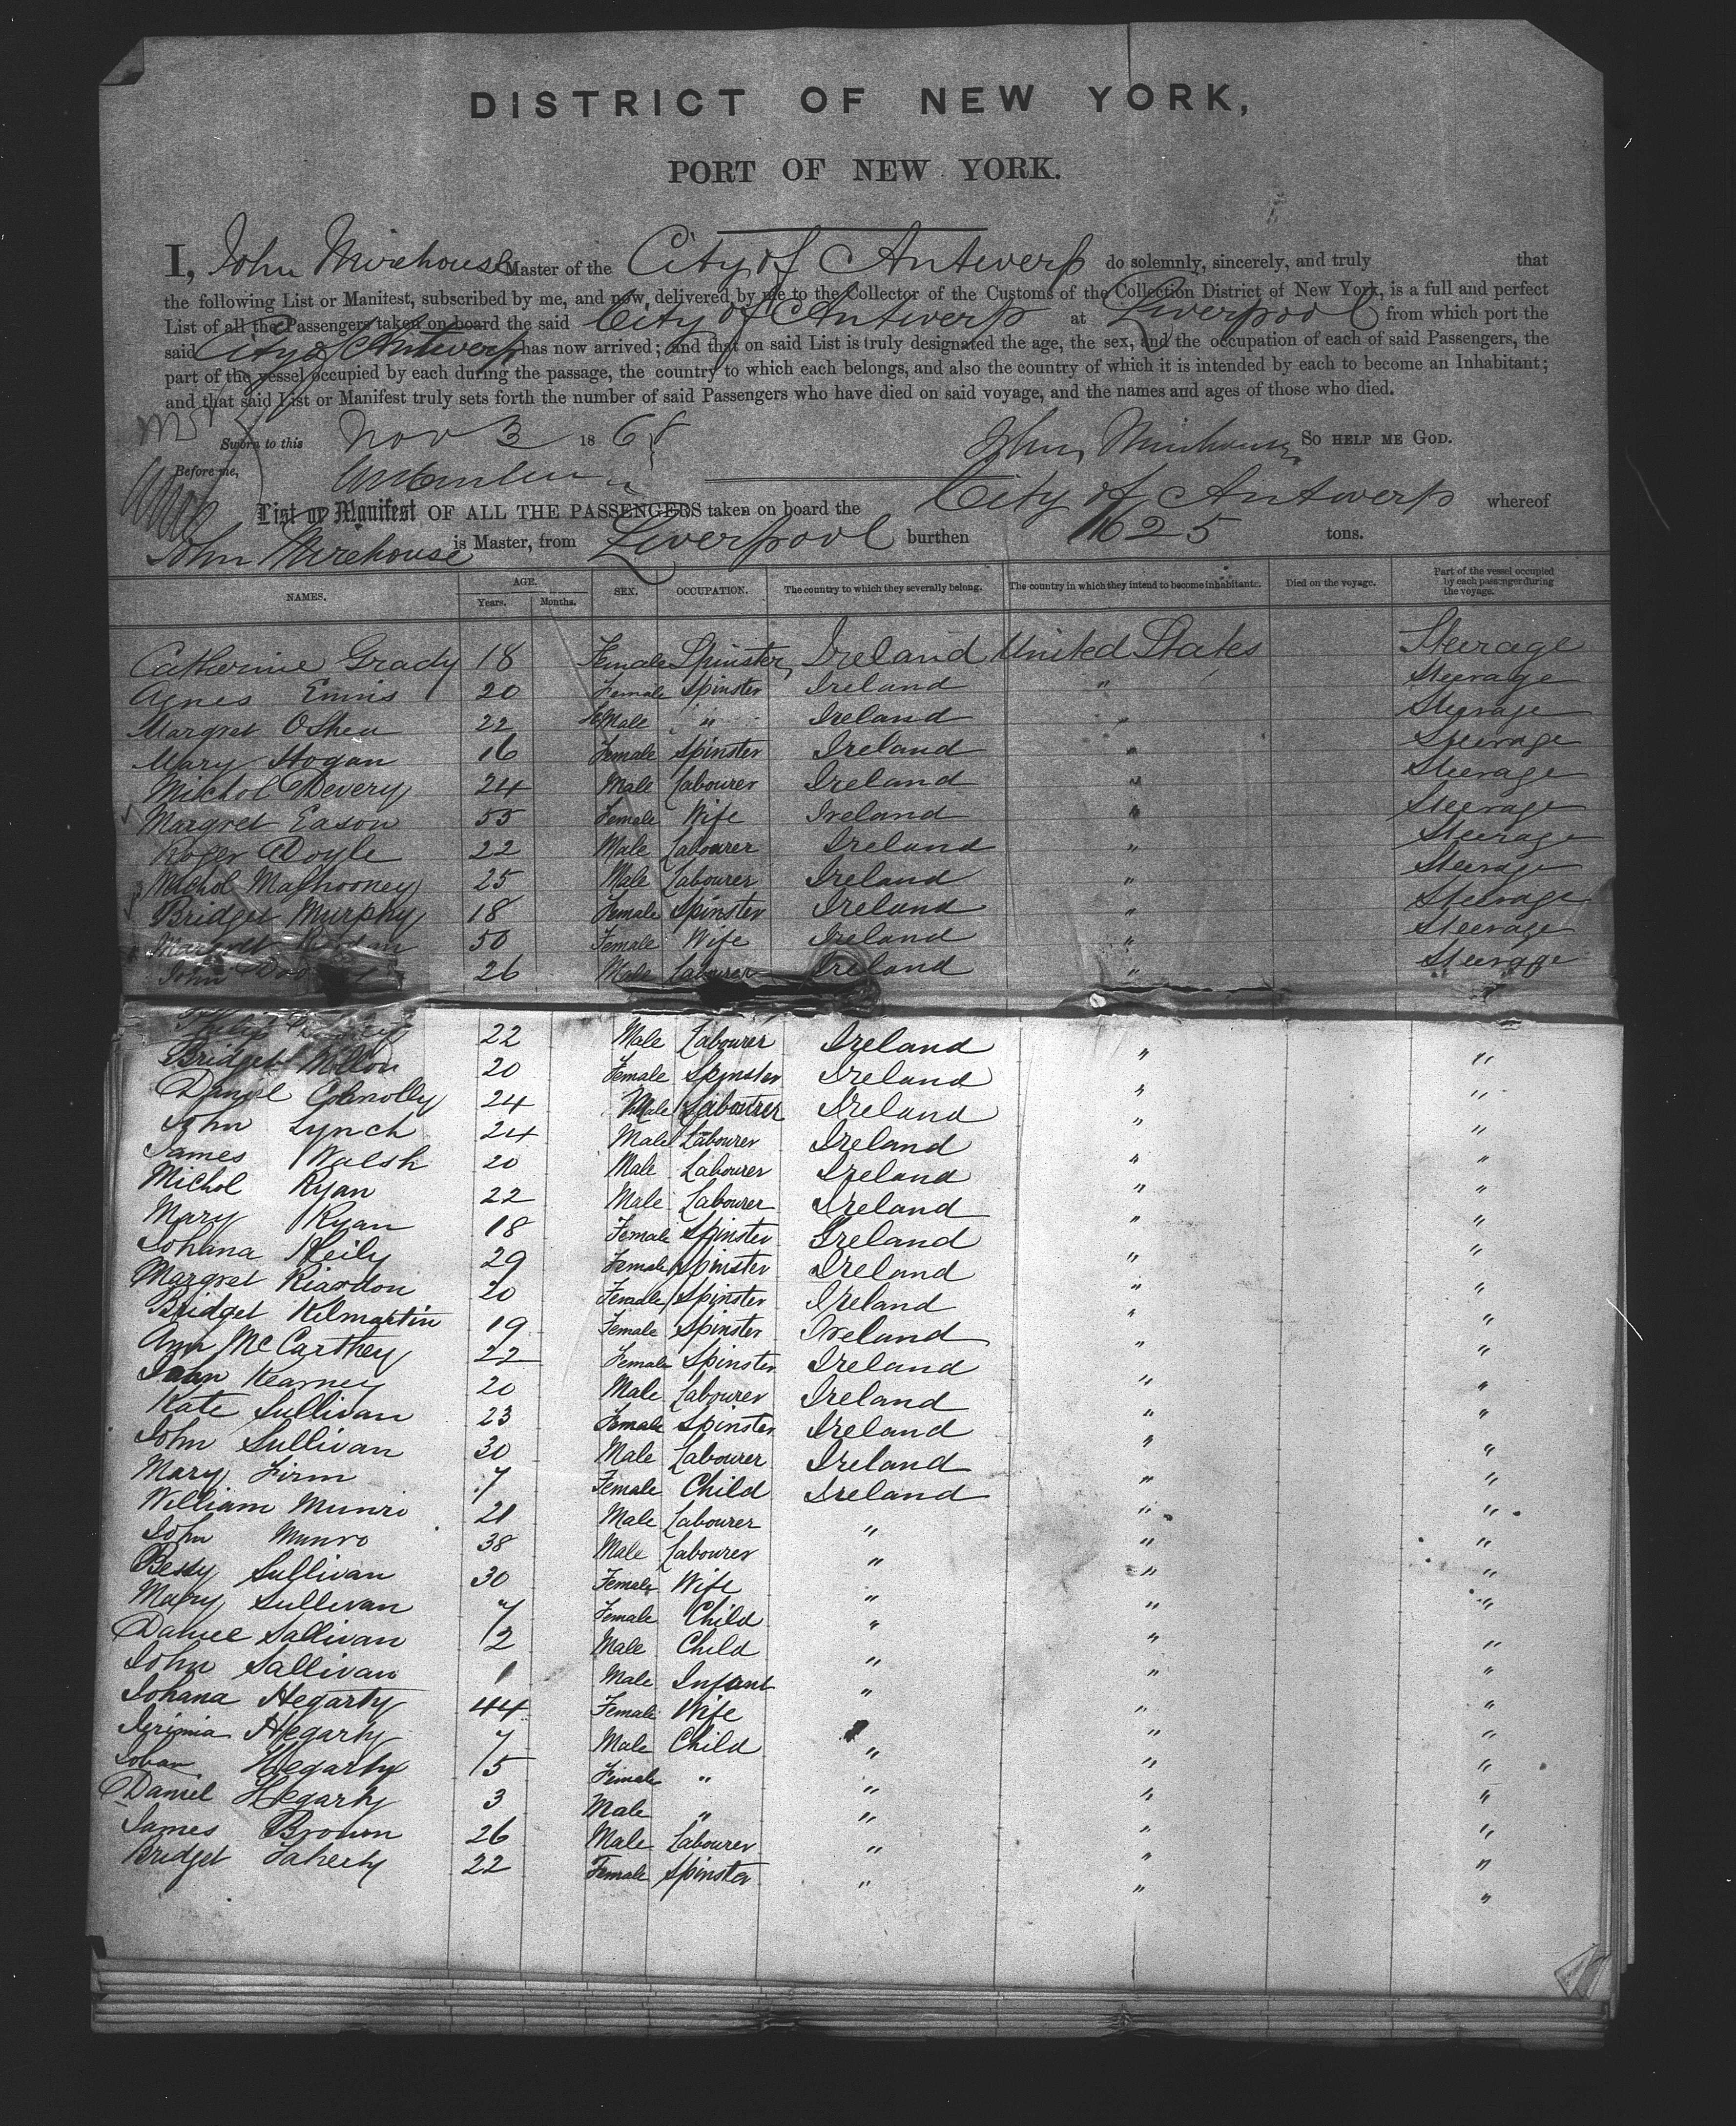 DISTRICT OF NEW YORK,
PORT OF NEW YORK.
I, John Mirehouse Master of the City of Antwerp do solemnly, sincerely, and truly that
the following List or Manifest, subscribed by me, and now delivered by me to the Collector of the Customs of the Collection District of New York, is a full and perfect
List of all the Passengers taken on board the said City of Antwerp at Liverpool from which port the
said City of Antwerp has now arrived; and that on said List is truly designated the age, the sex, and the occupation of each of said Passengers, the
part of the vessel occupied by each during the passage, the country to which each belongs, and also the country of which it is intended by each to become an Inhabitant;
and that said List or Manifest truly sets forth the number of said Passengers who have died on said voyage, and the names and ages of those who died.
Sworn to this Nov 3 1868 John Mirehouse SO HELP ME GOD.
Before me,
List or Manifest OF ALL THE PASSENGERS taken on board the City of Antwerp whereof
John Mirehouse is Master, from Liverpool burthen 1625 tons.
NAMES. AGE. Years. Months. SEX. OCCUPATION. The country to which they severally belong. The country in which they intend to become inhabitants. Died on the voyage. Part of the vessel occupied by each passenger during the voyage.
Catherine Grady 18 Female Spinster Ireland United States Steerage
Agnes Ennis 20 Female Spinster Ireland " Steerage
Margret OShea 22 Male " Ireland " Steerage
Mary Hogan 16 Female Spinster Ireland " Steerage
Michol Devery 24 Male Labourer Ireland " Steerage
Margret Eason 55 Female Wife Ireland " Steerage
Roger Doyle 22 Male Labourer Ireland " Steerage
Michol Malhooney 25 Male Labourer Ireland " Steerage
Bridget Murphy 18 Female Spinster Ireland " Steerage
50 Female Wife Ireland " Steerage
John 26 Male Labourer Ireland " Steerage
Philip 22 Male Labourer Ireland " "
Bridget 20 Female Spinster Ireland " "
Daniel Connolly 24 Male Labourer Ireland " "
John Lynch 24 Male Labourer Ireland " "
James Walsh 20 Male Labourer Ireland " "
Michol Ryan 22 Male Labourer Ireland " "
Mary Ryan 18 Female Spinster Ireland " "
Johana Keily 29 Female Spinster Ireland " "
Margret Riardon 20 Female Spinster Ireland " "
Bridget Kilmartin 19 Female Spinster Ireland " "
Ann McCarthey 22 Female Spinster Ireland " "
John Kearney 20 Male Labourer Ireland " "
Kate Sullivan 23 Female Spinster Ireland " "
John Sullivan 30 Male Labourer Ireland " "
Mary Firm 7 Female Child Ireland " "
William Munro 21 Male Labourer " " "
John Munro 38 Male Labourer " " "
Bessy Sullivan 30 Female Wife " " "
Mary Sullivan 7 Female Child " " "
Daniel Sallivan 2 Male Child " " "
John Sallivan 1 Male Infant " " "
Johana Hegarty 44 Female Wife " "
Jerimia Hegarty 7 Male Child " " "
Johan Hegarty 5 Female " " " "
Daniel Hegarty 3 Male " " " "
James Brown 26 Male Labourer " " "
Bridget Faherty 22 Female Spinster " " "